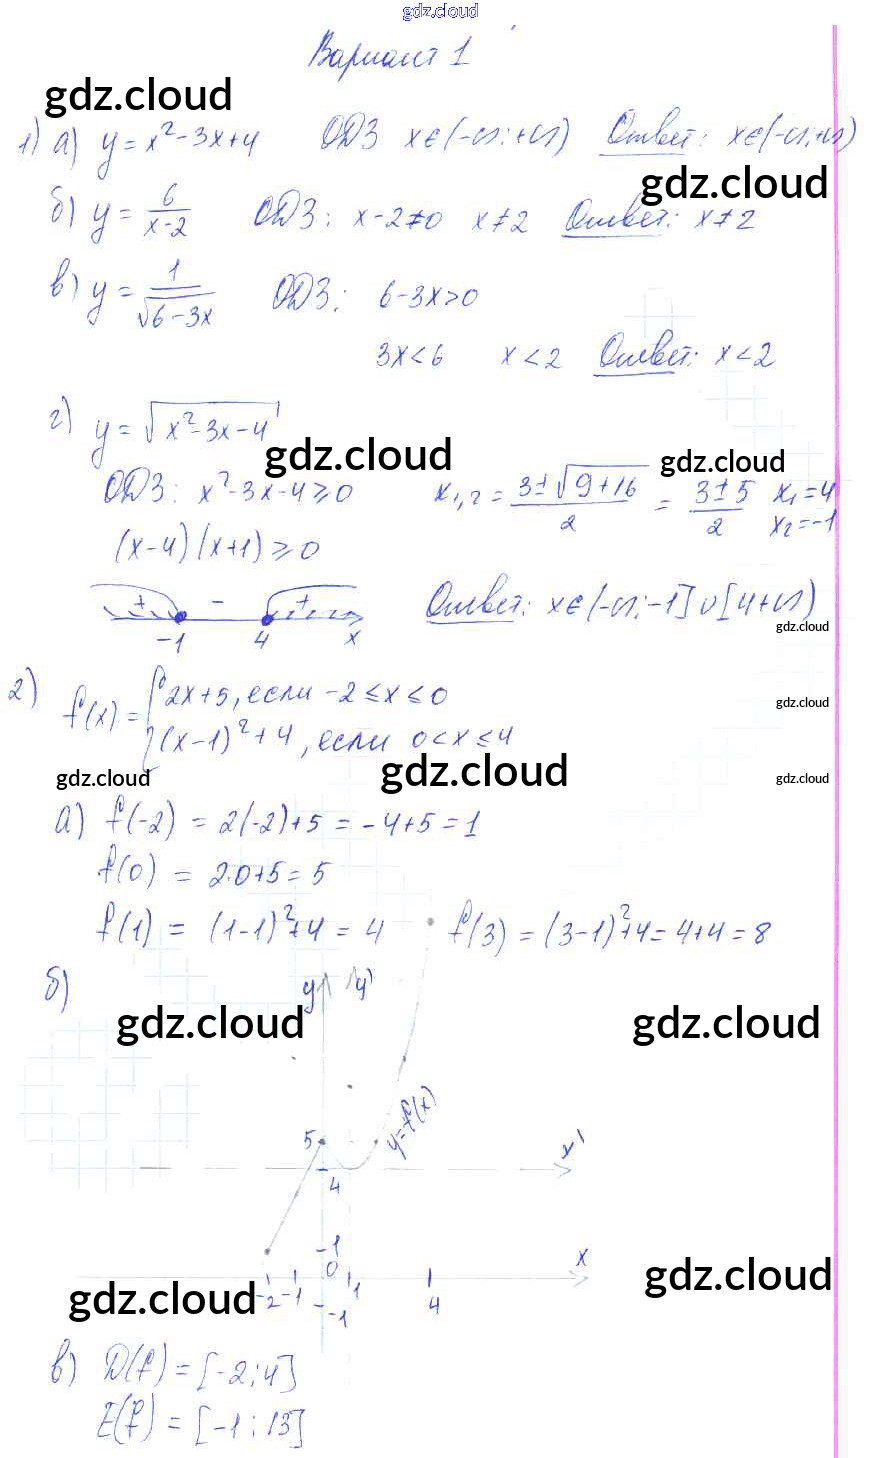 gdz.cloud
Вариант 1
gdz.cloud
1) а) y = x² - 3x + 4 ОДЗ x ∈ (-∞; +∞) Ответ: x ∈ (-∞; +∞)
gdz.cloud
б) y = 6/(x-2) ОДЗ: x - 2 ≠ 0 x ≠ 2 Ответ: x ≠ 2
в) y = 1/√(6-3x) ОДЗ: 6 - 3x > 0
3x < 6 x < 2 Ответ: x < 2
г) y = √(x² - 3x - 4)
gdz.cloud
gdz.cloud
ОДЗ: x² - 3x - 4 ≥ 0 x₁,₂ = (3 ± √(9+16))/2 = (3 ± 5)/2 x₁ = 4 x₂ = -1
(x-4)(x+1) ≥ 0
+ - +
-1 4 x
Ответ: x ∈ (-∞; -1] ∪ [4 +∞)
gdz.cloud
2) f(x) = { 2x+5, если -2 ≤ x ≤ 0
(x-1)² + 4, если 0 < x ≤ 4
gdz.cloud
gdz.cloud
gdz.cloud
gdz.cloud
а) f(-2) = 2(-2)+5 = -4+5 = 1
f(0) = 2·0+5 = 5
f(1) = (1-1)² + 4 = 4 f(3) = (3-1)² + 4 = 4+4 = 8
б)
y y'
gdz.cloud
gdz.cloud
y=f(x)
5 x'
4
1
0 x
-2 -1 1 4
-1
gdz.cloud
gdz.cloud
в) D(f) = [-2; 4]
E(f) = [-1; 13]